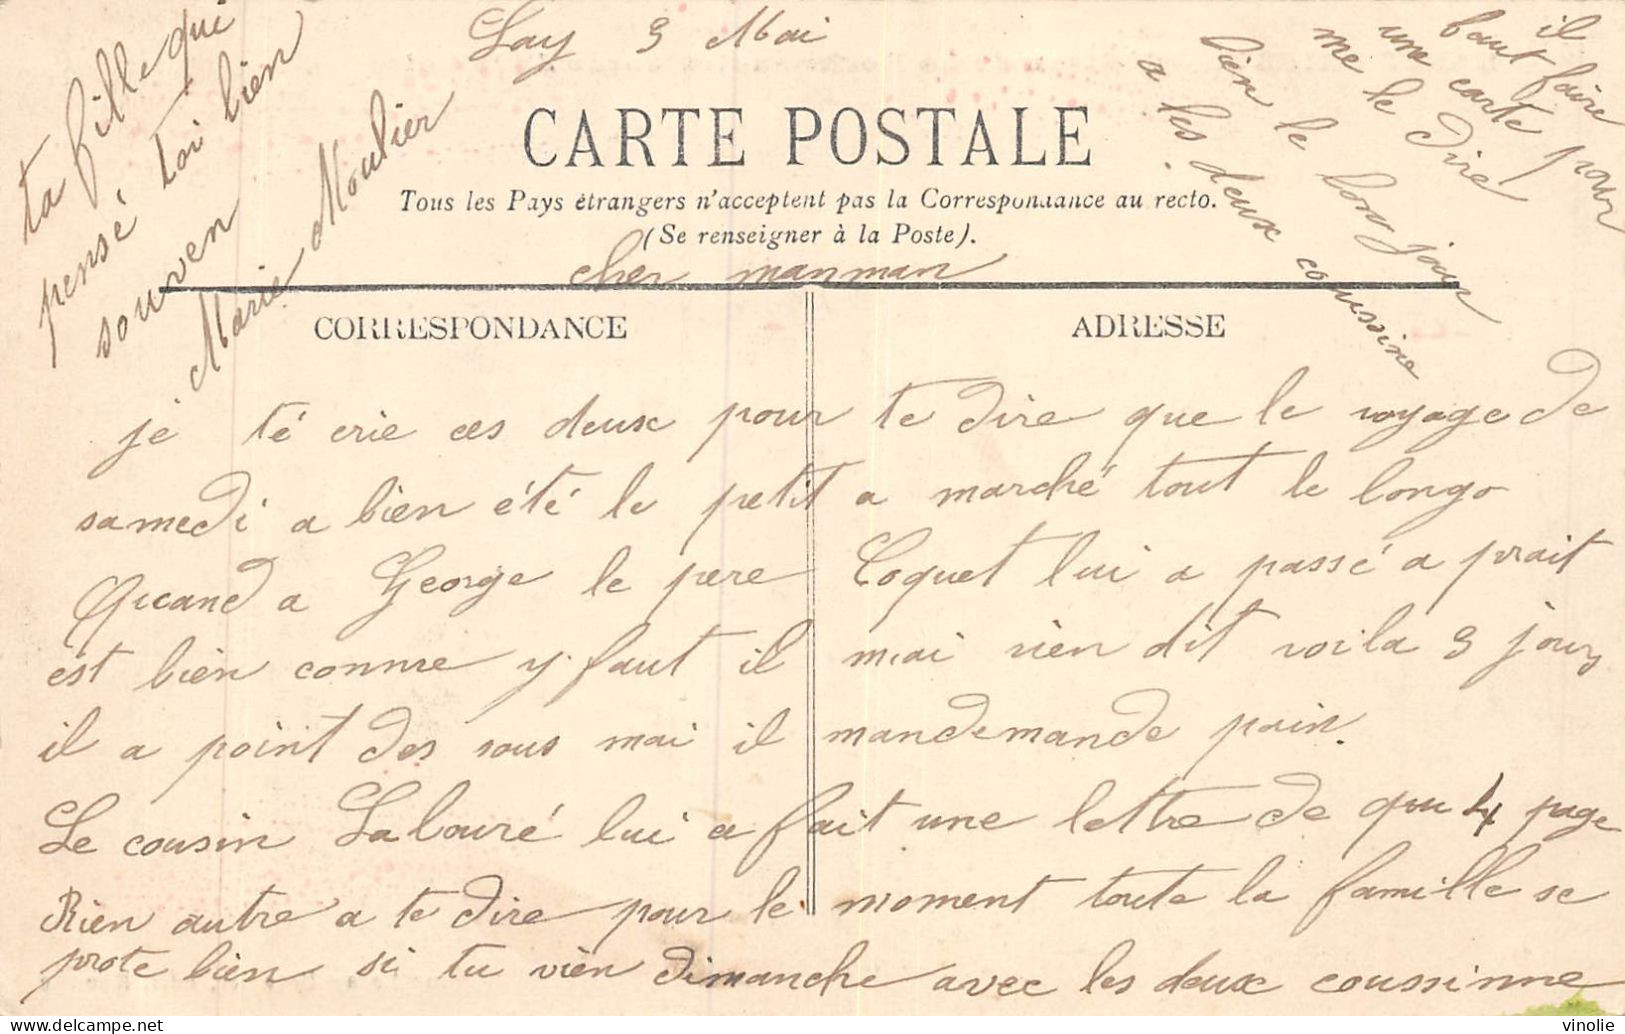 Lay 3 Mai
CARTE POSTALE
Tous les Pays étrangers n'acceptent pas la Correspondance au recto.
(Se renseigner à la Poste).
cher manman
CORRESPONDANCE
ADRESSE
je té crie ces deux pour te dire que le voyage de
samedi a bien été le petit a marché tout le longo
Quand a George le pere Coquet lui a passé a prait
est bien conme y faut il mai rien dit voila 3 jours
il a point des sous mai il mandemande poin.
Le cousin Labouré lui a fait une lettre de 4 page
Rien autre a te dire pour le moment toute la famille se
prote bien si tu vien dimanche avec les deux coussinne
il
faut faire
une carte pour
me le dire
bien le bon jour
a les deux coussine
ta fille qui
pensé toi bien
souven
Marie Moulier
vinolie